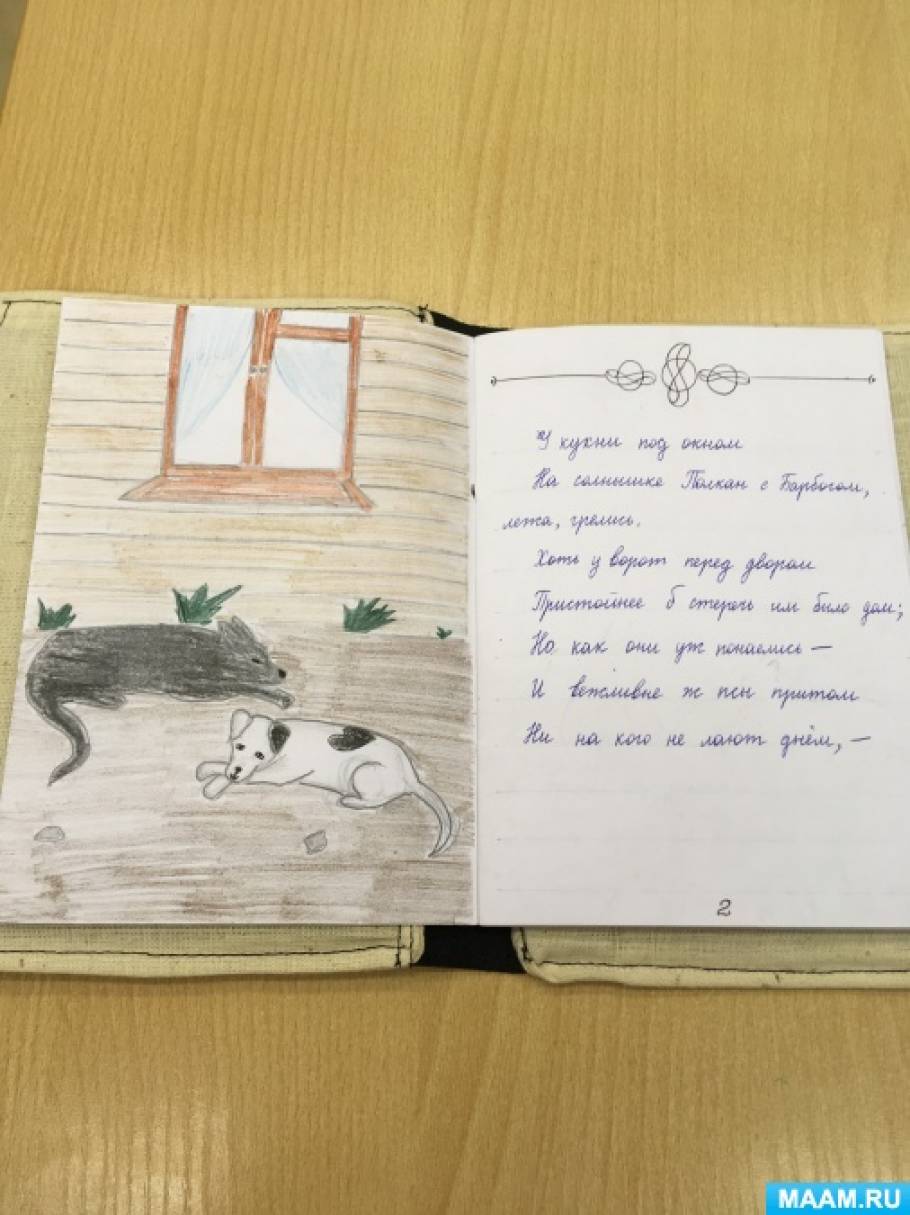 У кухни под окном
На солнышке Полкан с Барбосом,
лежа, грелись.
Хоть у ворот перед двором
Пристойнее б стеречь им было дом;
Но как они уж понаелись —
И вежливые ж псы притом
Ни на кого не лают днём, —
2
MAAM.RU